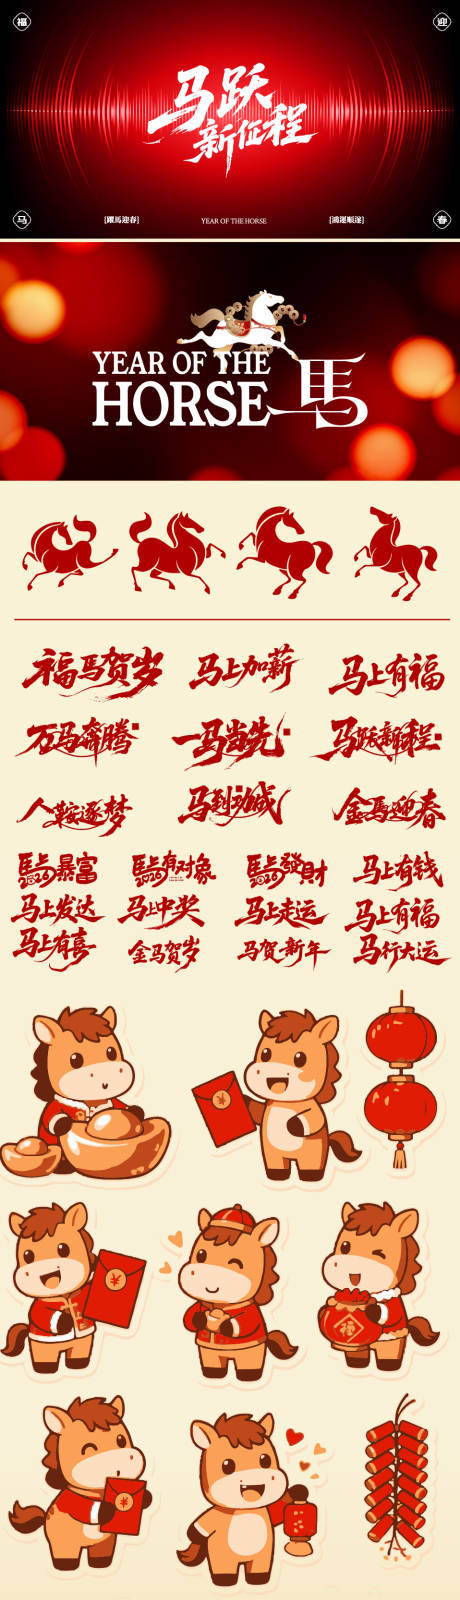 福
迎
马跃
新征程
马
[躍馬迎春]
YEAR OF THE HORSE
[鴻運順遂]
春
YEAR OF THE
HORSE 馬
福马贺岁
马上加薪
马上有福
万马奔腾
一马当先
马跃新程
人鞍逐梦
马到功成
金马迎春
馬上暴富
2026
馬上有对象
2026
馬上發財
2026
马上有钱
马上发达
马上中奖
马上走运
马上有福
马上有喜
金马贺岁
马贺新年
马行大运
¥
¥
福
¥